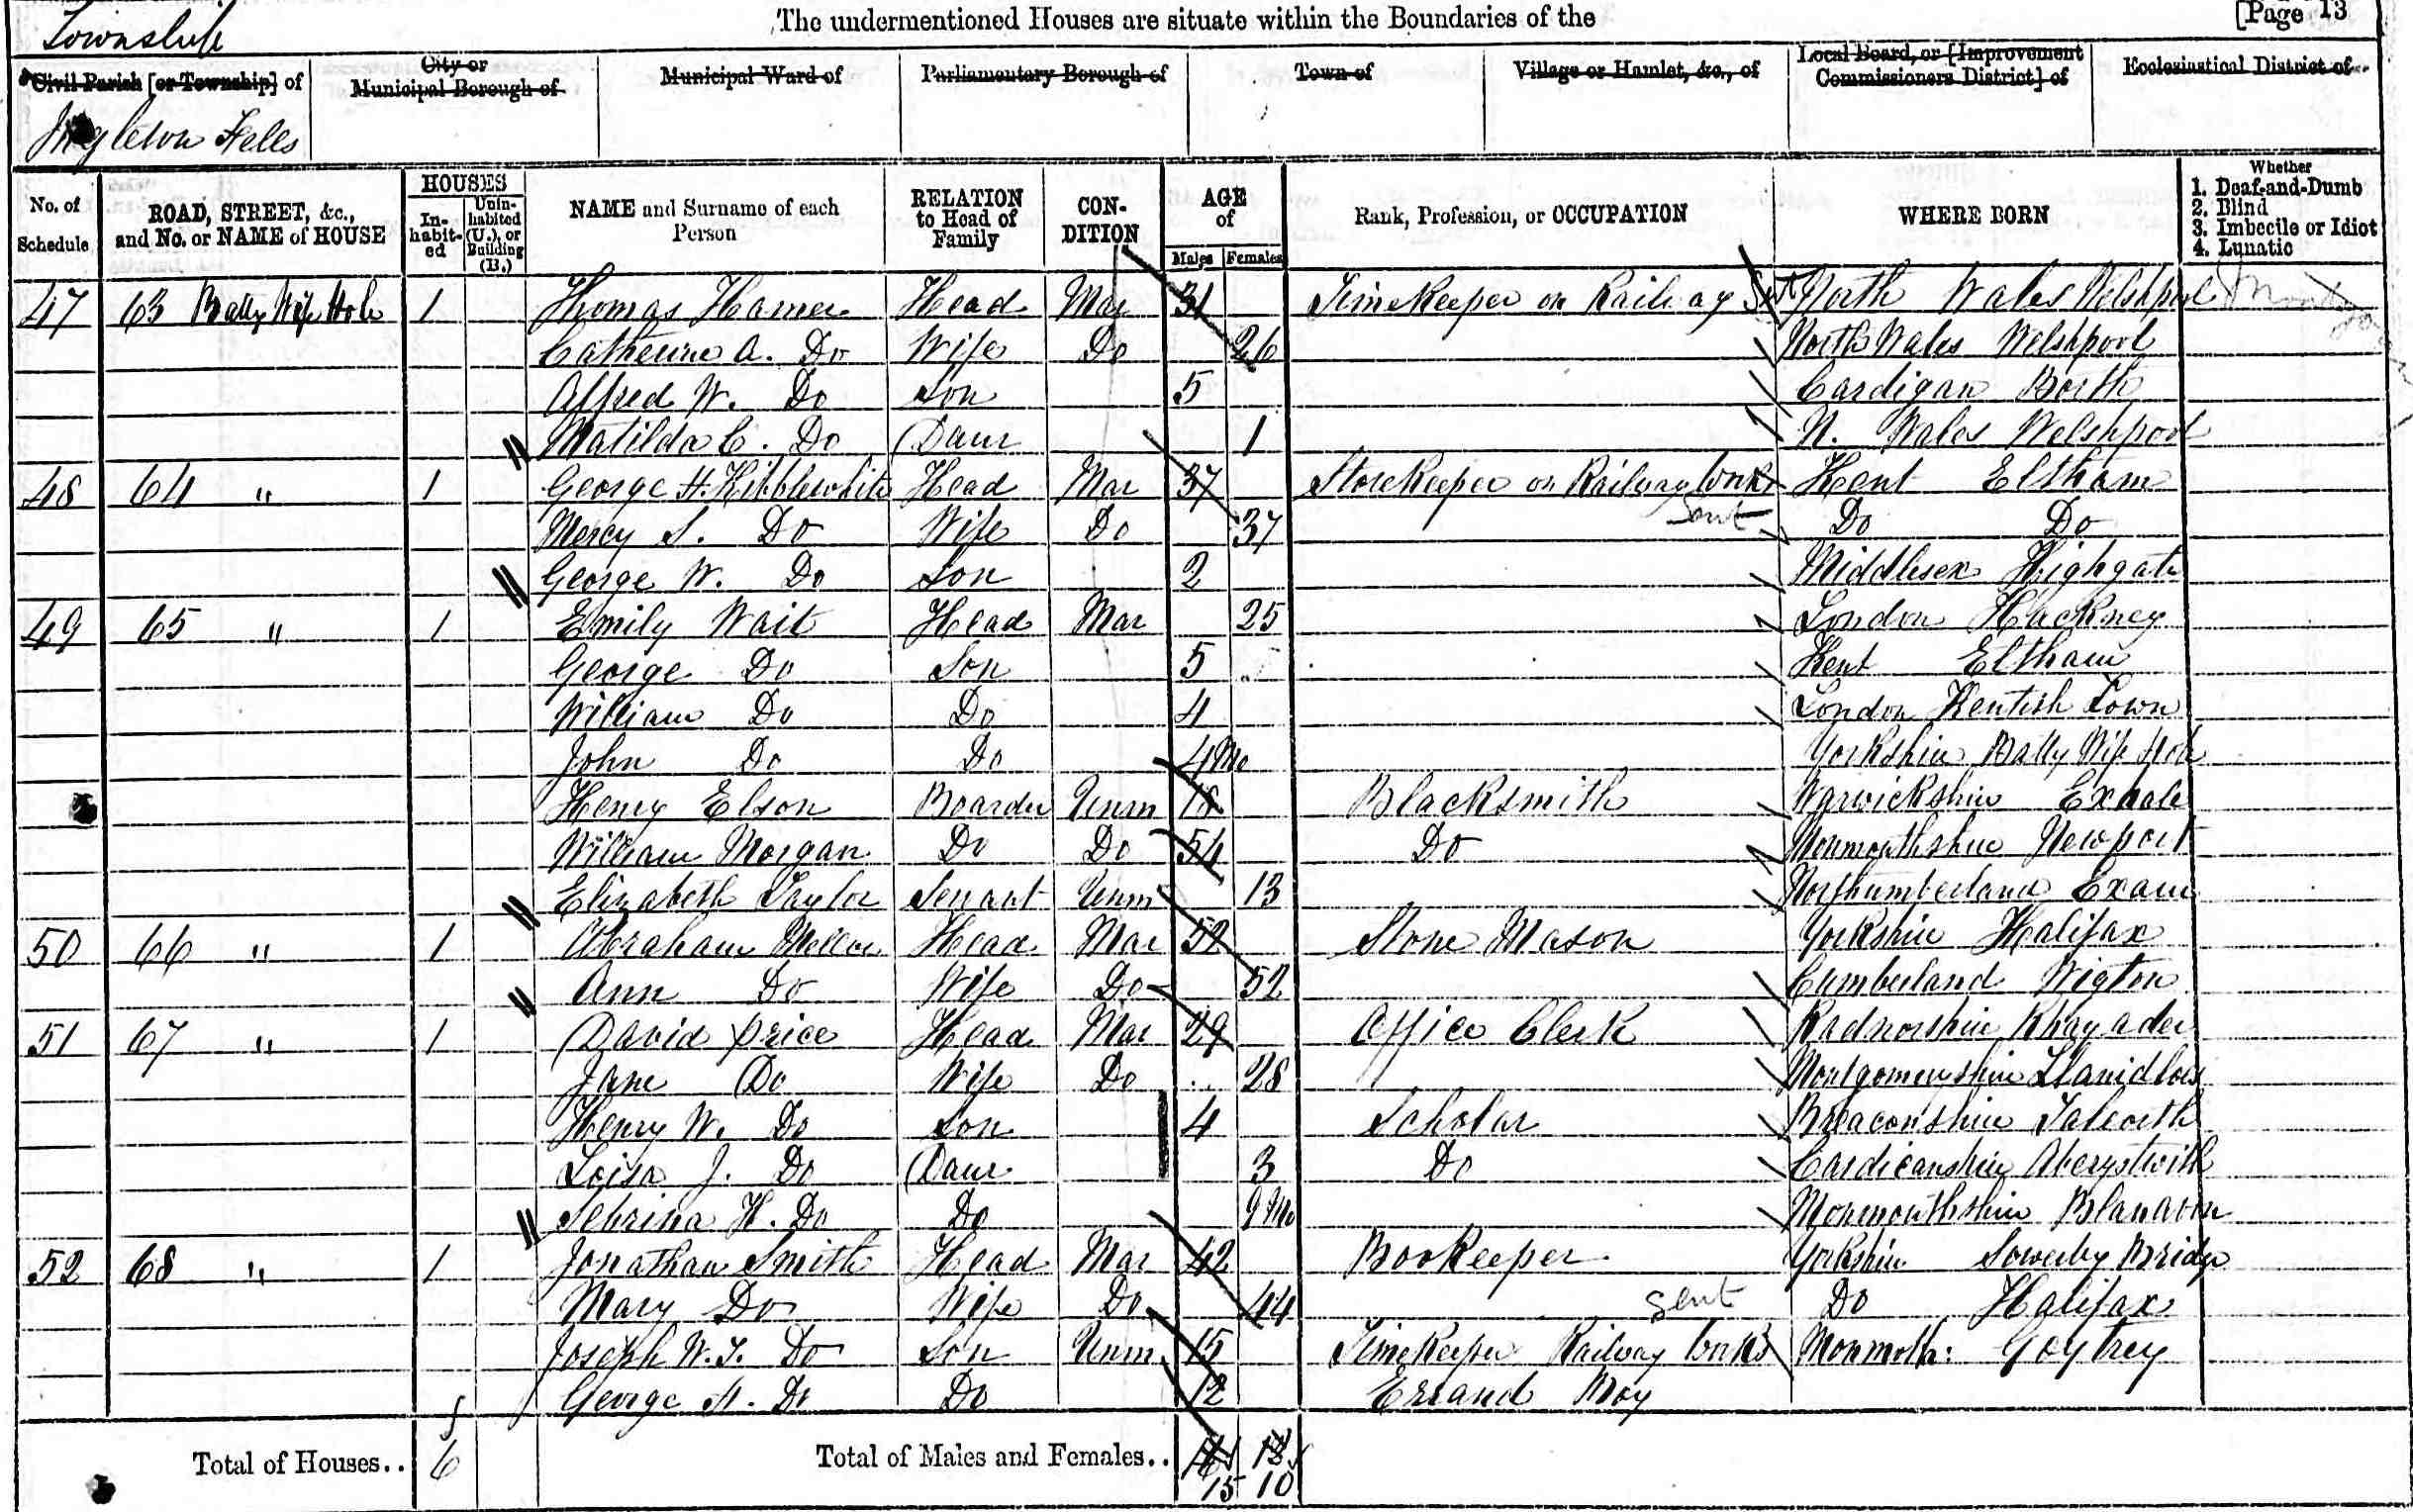 The undermentioned Houses are situate within the Boundaries of the
[Page 13
Township
Civil Parish [or Township] of
City or Municipal Borough of
Municipal Ward of
Parliamentary Borough of
Town of
Village or Hamlet, &c., of
Local Board, or [Improvement Commissioners District] of
Ecclesiastical District of
Ingleton Fells
No. of Schedule
ROAD, STREET, &c., and No. or NAME of HOUSE
HOUSES
In-habit-ed
Unin-habited (U.), or Building (B.)
NAME and Surname of each Person
RELATION to Head of Family
CON-DITION
AGE of
Males
Females
Rank, Profession, or OCCUPATION
WHERE BORN
Whether
1. Deaf-and-Dumb
2. Blind
3. Imbecile or Idiot
4. Lunatic
47 63 Batty Wife Hole 1 Thomas Hamer Head Mar 31 Timekeeper on Railway North Wales Welshpool
Catherine A. Do Wife Do 26 North Wales Welshpool
Alfred W. Do Son 5 Cardigan Borth
Matilda C. Do Daur 1 N. Wales Welshpool
48 64 " 1 George H. Kibblewhite Head Mar 37 Storekeeper on Railway Works Kent Eltham
Mercy S. Do Wife Do 37 Do Do
George W. Do Son 2 Middlesex Highgate
49 65 " 1 Emily Wait Head Mar 25 London Hackney
George Do Son 5 Kent Eltham
William Do Do 4 London Kentish Town
John Do Do 4 Mo Yorkshire Batty Wife Hole
Henry Elson Boarder Unm 18 Blacksmith Warwickshire Exhale
William Morgan Do Do 54 Do Monmouthshire Newport
Elizabeth Taylor Servant Unm 13 Northumberland Exam
50 66 " 1 Abraham Mellor Head Mar 52 Stone Mason Yorkshire Halifax
Ann Do Wife Do 52 Cumberland Wigton
51 67 " 1 David Price Head Mar 29 Office Clerk Radnorshire Rhayader
Jane Do Wife Do 28 Montgomeryshire Llanidloes
Henry W. Do Son 4 Scholar Breaconshire Talgarth
Loisa J. Do Daur 3 Do Cardicanshire Aberystwith
Sebrina H. Do Do 9 Mo Monmouthshire Blanavon
52 68 " 1 Jonathan Smith Head Mar 42 Bookeeper Yorkshire Sowerby Bridge
Mary Do Wife Do 44 Do Halifax
Joseph W. T. Do Son Unm 15 Timekeeper Railway Works Monmoth: Goytrey
George H. Do Do 12 Errand Boy
Total of Houses.. 6
Total of Males and Females.. 15 10